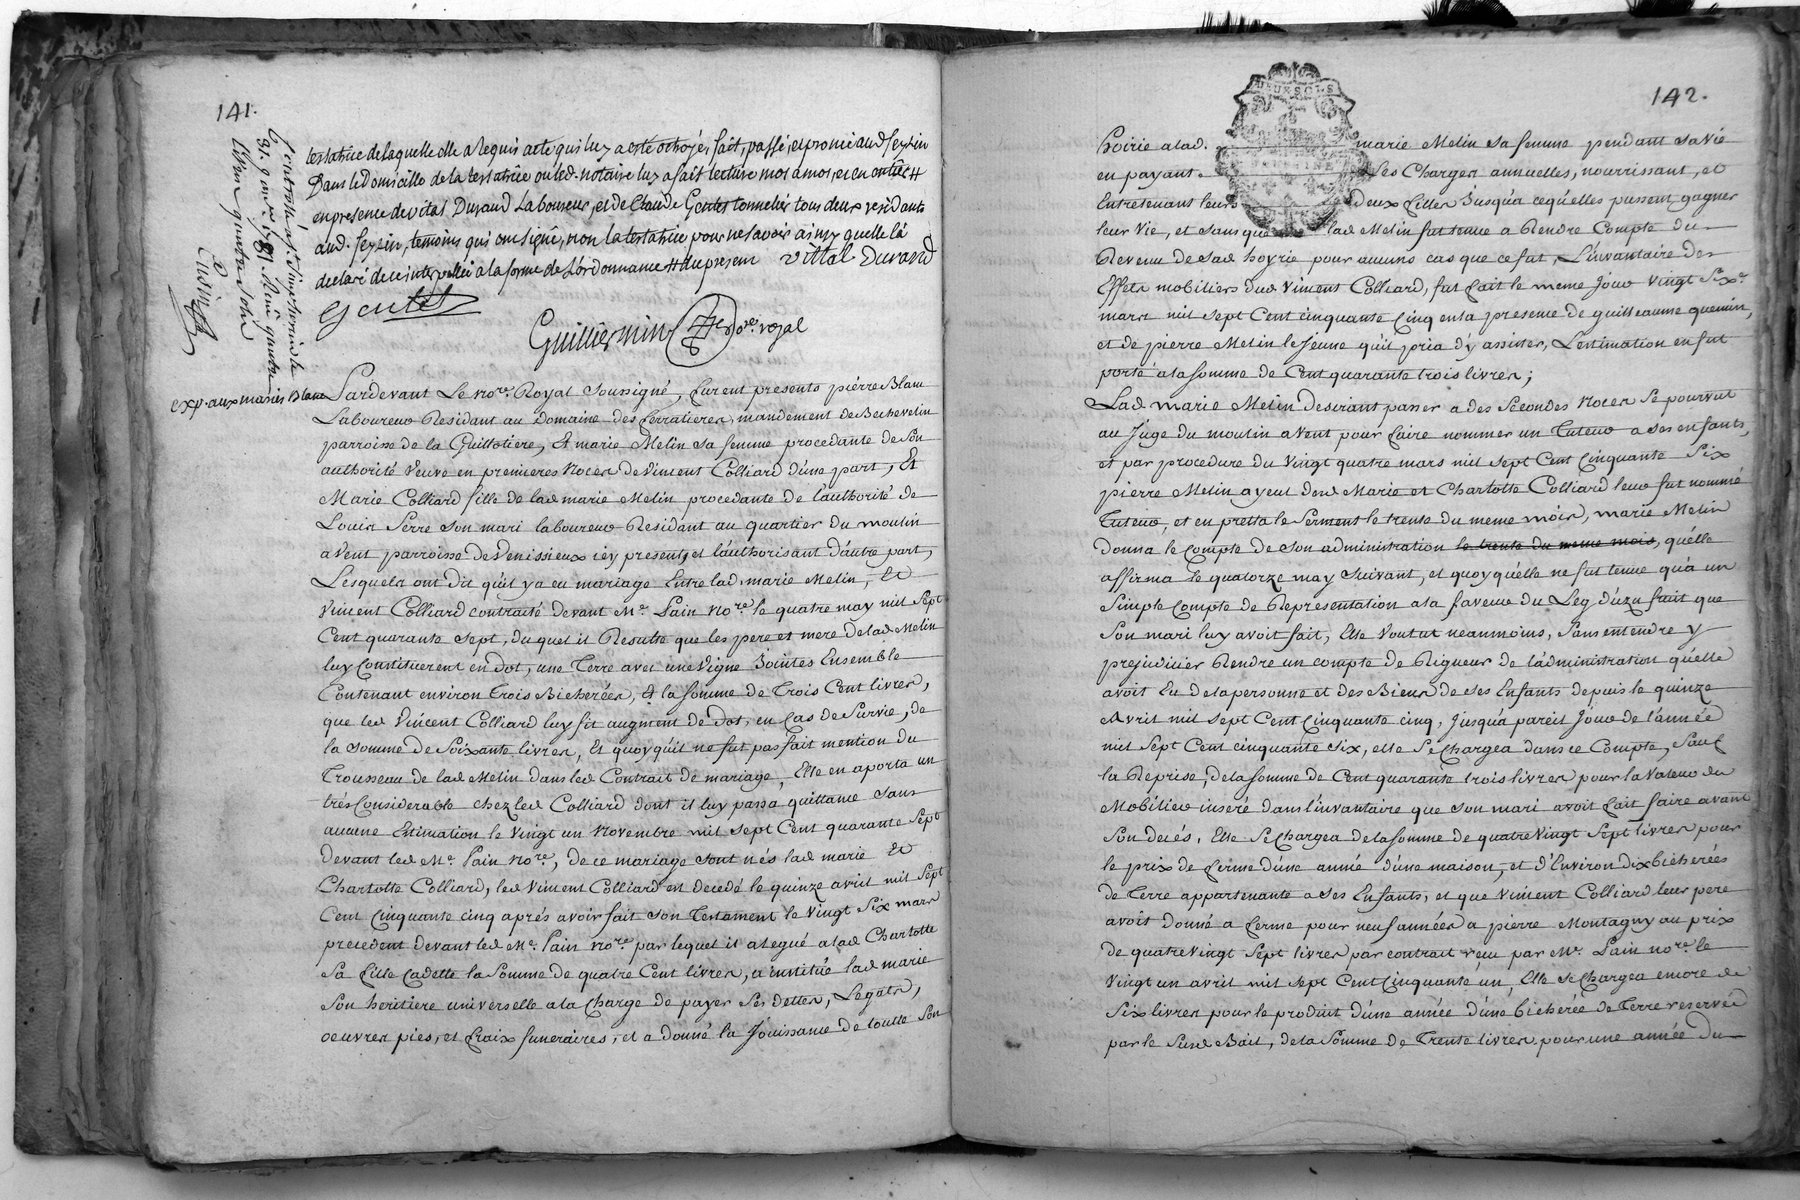 141.
testatrice de laquelle elle a requis acte qui luy a esté octroyé, fait, passé, et prononcé aud feyzin
Dans le Domicille de la testatrice ou led. notaire luy a fait lecture mot a mot, et en entier #
en presence de vital Durand Laboureur, et de Claude Gentes tonnelier tous deux residants
aud. feyzin, temoins qui ont signé, non la testatrice pour ne savoir ainsy quelle l'a
declaré de ce interpellée a la forme de L'ordonnance # du present vittal Durand
Guilliermin no.re royal
exp. aux mariés Blanc
Pardevant Le No.re Royal Soussigné, furent presents pierre Blanc
Laboureur Residant au Domaine des ferratieres, mandement de Bechevelin
parroisse de la Guillotiere, Et marie Melin sa femme procedante de son
authorité Veuve en premieres Noces de Vincent Colliard d'une part, Et
Marie Colliard fille de lad marie Melin procedante de l'authorité de
Louis Serre son mari laboureur Residant au quartier du moulin
a vent parroisse de Venissieux icy present, et l'authorisant d'autre part,
Lesquels ont dit qu'il y a eu mariage Entre lad. marie Melin, Et
Vincent Colliard contracté devant M.e Pain No.re le quatre may mil Sept
Cent quarante Sept, du quel il Resulte que les pere et mere de lad Melin
luy Constituerent en dot, une Terre avec une Vigne Jointes Ensemble
Contenant environ Trois Bicherées, Et la somme de Trois Cent livres,
que led Vincent Colliard luy fit augment de dot, en Cas de Survie, de
la Somme de Soixante livres, Et quoyqu'il ne fut pas fait mention du
Trousseau de lad Melin dans led Contrait de mariage, Elle en aporta un
trés Considerable chez led Colliard dont il luy passa quittance sans
aucune Estimation le Vingt un Novembre mil sept Cent quarante Sept
devant led M.e Pain No.re, de ce mariage sont nés lad marie Et
Charlotte Colliard, led Vincent Colliard est decedé le quinze avril mil Sept
Cent Cinquante cinq aprés avoir fait son Testament le Vingt Six mars
precedent devant led M.e Pain No.re par lequel il a legué a lad Charlotte
Sa fille Cadette la Somme de quatre Cent livres, a institué lad marie
Son heritiere universelle a la Charge de payer ses dettes, Legats,
oeuvres pies, et fraix funeraires, et a donné la Jouissance de toutte Son
142.
DEUX SOLS
hoirie a lad. marie Melin Sa femme pendant Sa Vie
en payant les Charges annuelles, nourrissant, et
Entretenant leurs deux filles Jusqu'a cequ'elles pussent gagner
leur Vie, et Sans que lad Melin fut tenue a Rendre Compte du
Revenu de Sad hoyrie pour aucuns cas que ce fut, L'invantaire des
Effets mobiliers dud Vincent Colliard, fut fait le meme Jour Vingt Six.e
mars mil Sept Cent Cinquante Cinq en la presence de guilleaume quemin,
et de pierre Melin le Jeune qu'il pria d'y assister, L'estimation en fut
porté a la somme de Cent quarante trois livres;
Lad marie Melin desirant passer a des Secondes Noces Se pourvut
au Juge du moulin a vent pour faire nommer un Tuteur a Ses enfants,
et par procedure du Vingt quatre mars mil Sept Cent Cinquante Six
pierre Melin ayeul desd Marie et Charlotte Colliard leur fut nommé
Tuteur, et en presta le Serment le trente du meme mois, marie Melin
donna le Compte de Son administration le trente du meme mois, qu'elle
affirma le quatorze may Suivant, et quoyqu'elle ne fut tenue qu'a un
Simple Compte de Representation a la faveur du Leg d'uzu fruit que
Son mari luy avoit fait, Elle Voulut neanmoins, Sans entendre y
prejudicier Rendre un compte de Rigueur de l'administration qu'elle
avoit Eu de la personne et des Biens de Ses Enfants depuis le quinze
Avril mil sept Cent Cinquante cinq, Jusqu'a pareil Jour de l'année
mil Sept Cent Cinquante Six, elle Se Chargea dans ce Compte, Sauf
la Reprise, de la Somme de Cent quarante trois livres pour la Valeur du
Mobilier inseré dans l'invantaire que Son mari avoit fait faire avant
Son decés, Elle Se Chargea de la somme de quatre Vingt Sept livres pour
le prix de ferme d'une année d'une maison, et d'Environ dix bicherées
de Terre appartenante a Ses Enfants, et que Vincent Colliard leur pere
avoit donné a ferme pour neuf années a pierre Montagny au prix
de quatre Vingt Sept livres par contrait reçu par M.e Pain No.re le
Vingt un avril mil Sept Cent Cinquante un, Elle Se Chargea encore de
Six livres pour le produit d'une année d'une bicherée de Terre reservée
par le Susd Bail, de la Somme de Trente livres pour une année du